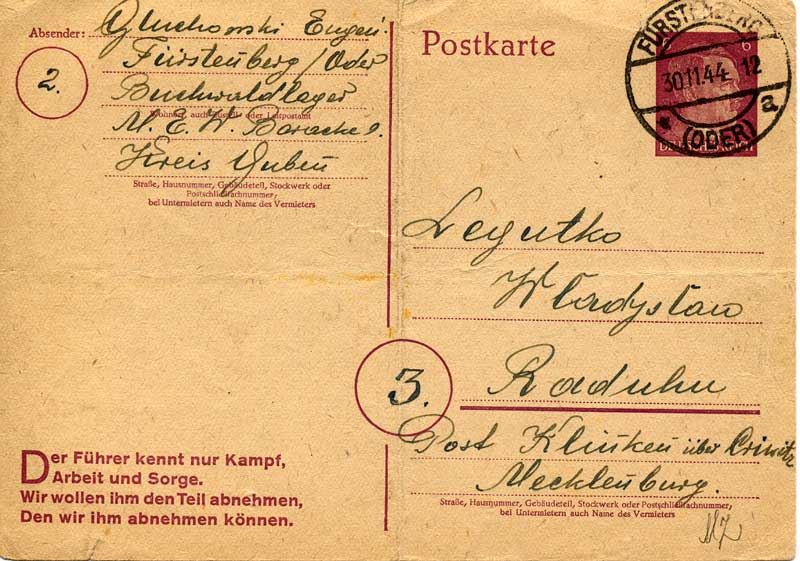 Absender: Gluchowski Eugen.
Fürstenberg/Oder
Buchwaldlager
Wohnort, auch Zustell- oder Leitpostamt
M. E. W. Baracke 9.
Kreis Guben
Straße, Hausnummer, Gebäudeteil, Stockwerk oder
Postschließfachnummer,
bei Untermietern auch Name des Vermieters
2.
Der Führer kennt nur Kampf,
Arbeit und Sorge.
Wir wollen ihm den Teil abnehmen,
Den wir ihm abnehmen können.
Postkarte
FÜRSTENBERG
30.11.44. 12
* (ODER) a
6
DEUTSCHES REICH
Legutko
Wladyslaw
Raduhn
3.
Post Klinken über Crivitz
Mecklenburg.
Straße, Hausnummer, Gebäudeteil, Stockwerk oder Postschließfachnummer,
bei Untermietern auch Name des Vermieters